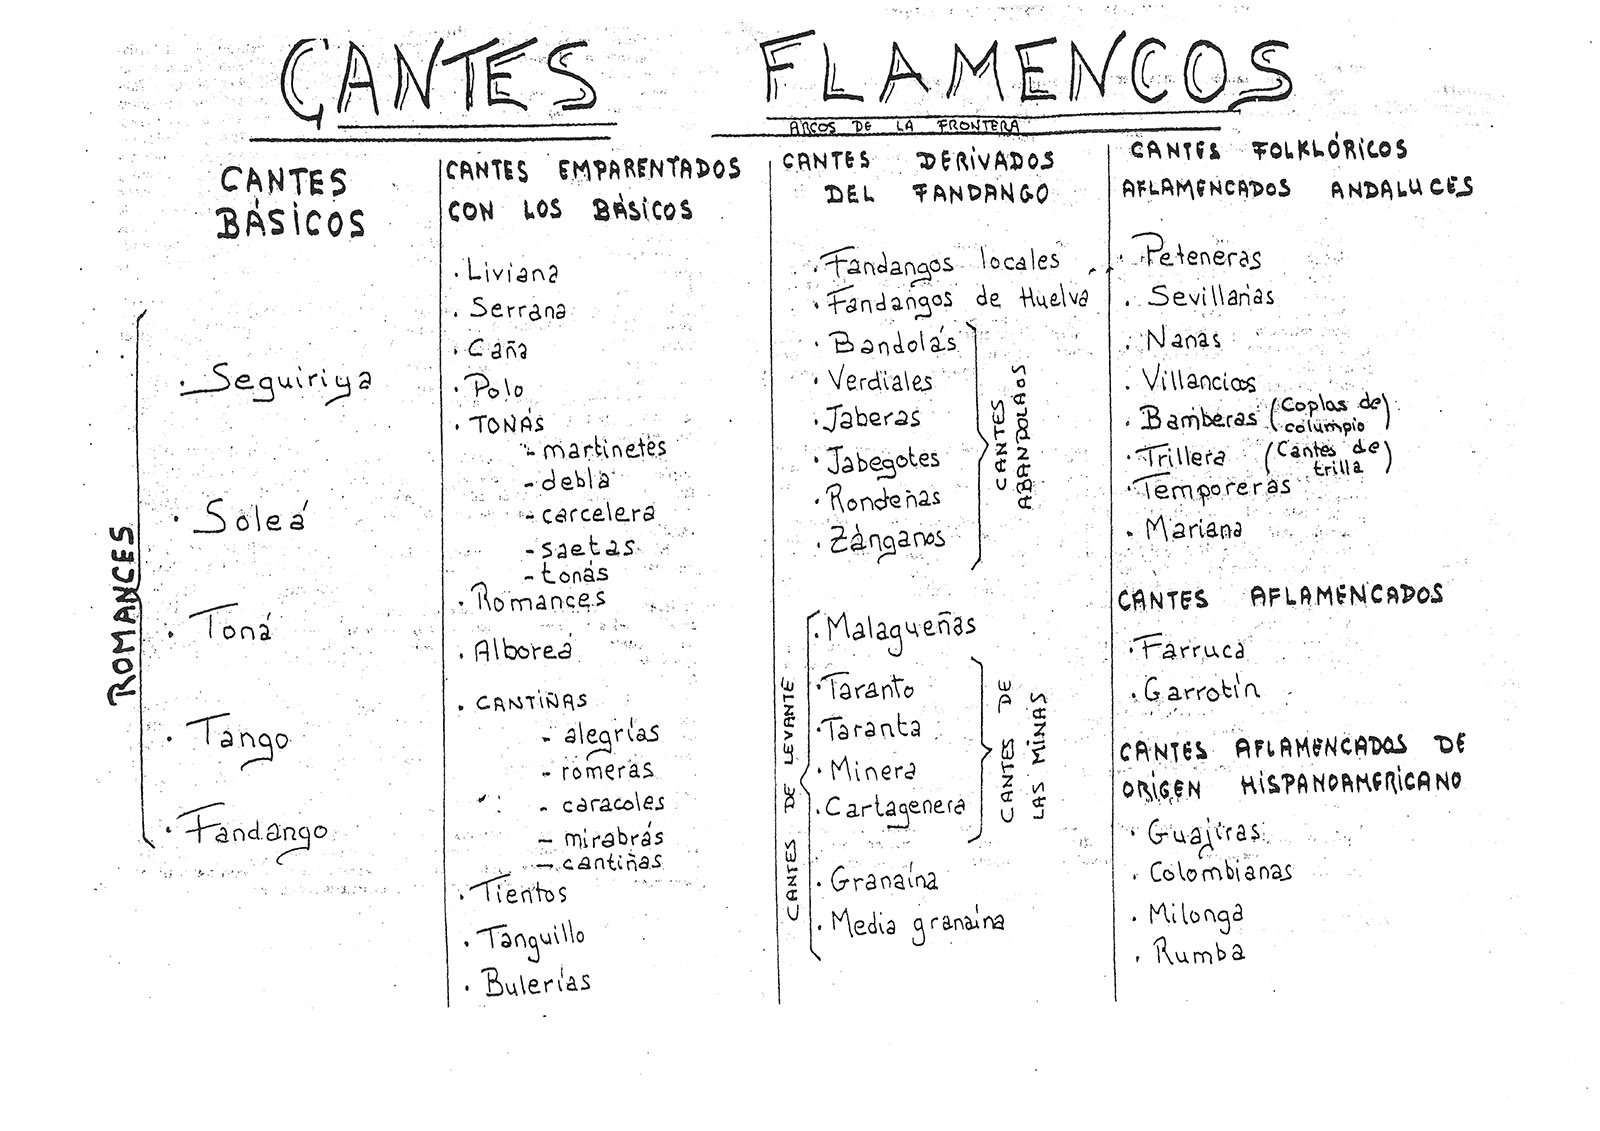 CANTES FLAMENCOS
ARCOS DE LA FRONTERA
CANTES
BÁSICOS
ROMANCES
. Seguiriya
. Soleá
. Toná
. Tango
. Fandango
CANTES EMPARENTADOS
CON LOS BÁSICOS
. Liviana
. Serrana
. Caña
. Polo
. TONÁS
- martinetes
- debla
- carcelera
- saetas
- tonás
. Romances
. Alboreá
. CANTIÑAS
- alegrías
- romeras
- caracoles
- mirabrás
- cantiñas
. Tientos
. Tanguillo
. Bulerías
CANTES DERIVADOS
DEL FANDANGO
. Fandangos locales
. Fandangos de Huelva
. Bandolás
. Verdiales
. Jaberas
. Jabegotes
. Rondeñas
. Zánganos
CANTES
ABANDOLADOS
CANTES DE LEVANTE
. Malagueñas
. Taranto
. Taranta
. Minera
. Cartagenera
CANTES DE
LAS MINAS
. Granaína
. Media granaína
CANTES FOLKLÓRICOS
AFLAMENCADOS ANDALUCES
. Peteneras
. Sevillanas
. Nanas
. Villancicos
. Bamberas (Coplas de
columpio)
. Trillera (Cantes de
trilla)
. Temporeras
. Mariana
CANTES AFLAMENCADOS
. Farruca
. Garrotín
CANTES AFLAMENCADOS DE
ORIGEN HISPANOAMERICANO
. Guajiras
. Colombianas
. Milonga
. Rumba